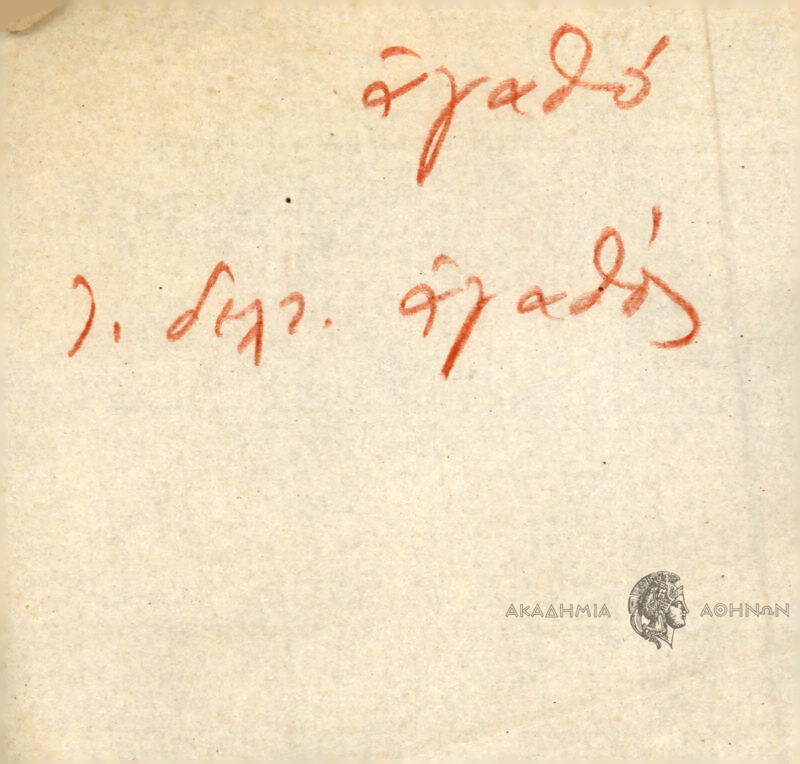 ἀγαθό
λ. δελτ. ἀγαθός
ΑΚΑΔΗΜΙΑ ΑΘΗΝΩΝ